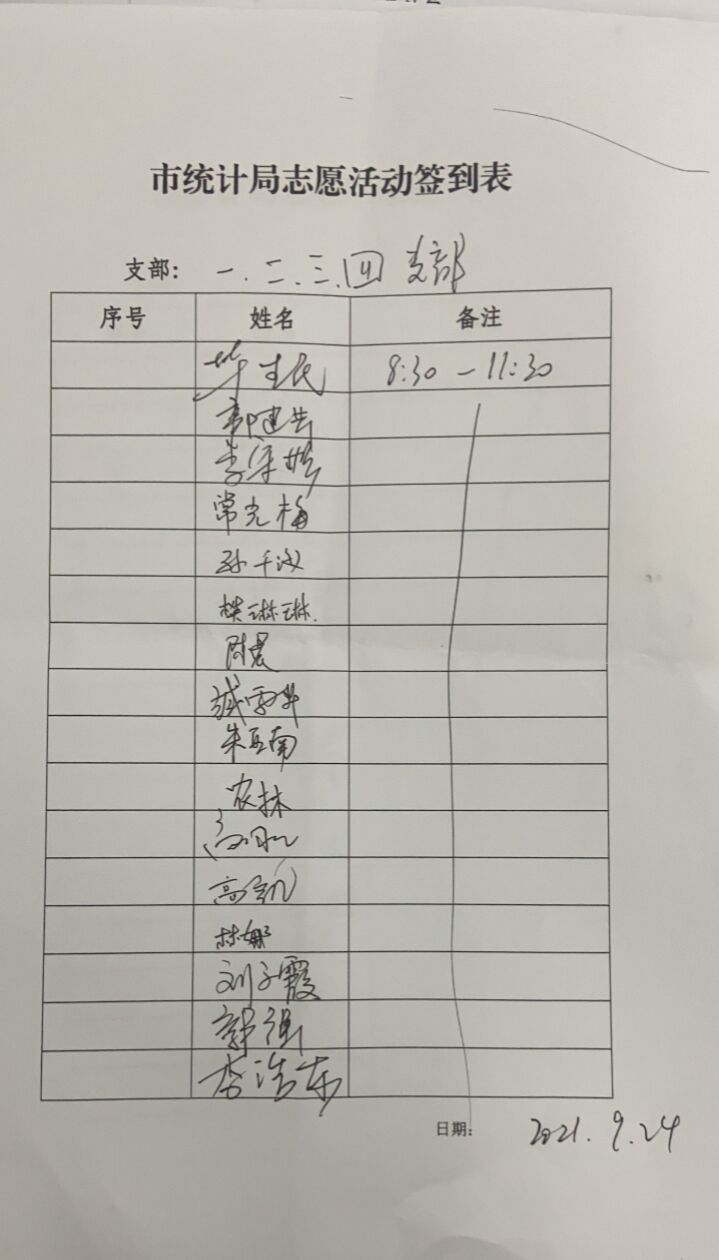 市统计局志愿活动签到表
支部: 一.二.三.四 支部
序号 姓名 备注
毕生民 8:30-11:30
郭建芸
常光梅
孙千汶
樊琳琳.
陈晨
臧雪婷
朱亚南
农林
高凯
林娜
刘子霞
郭强
李浩东
日期: 2021.9.24